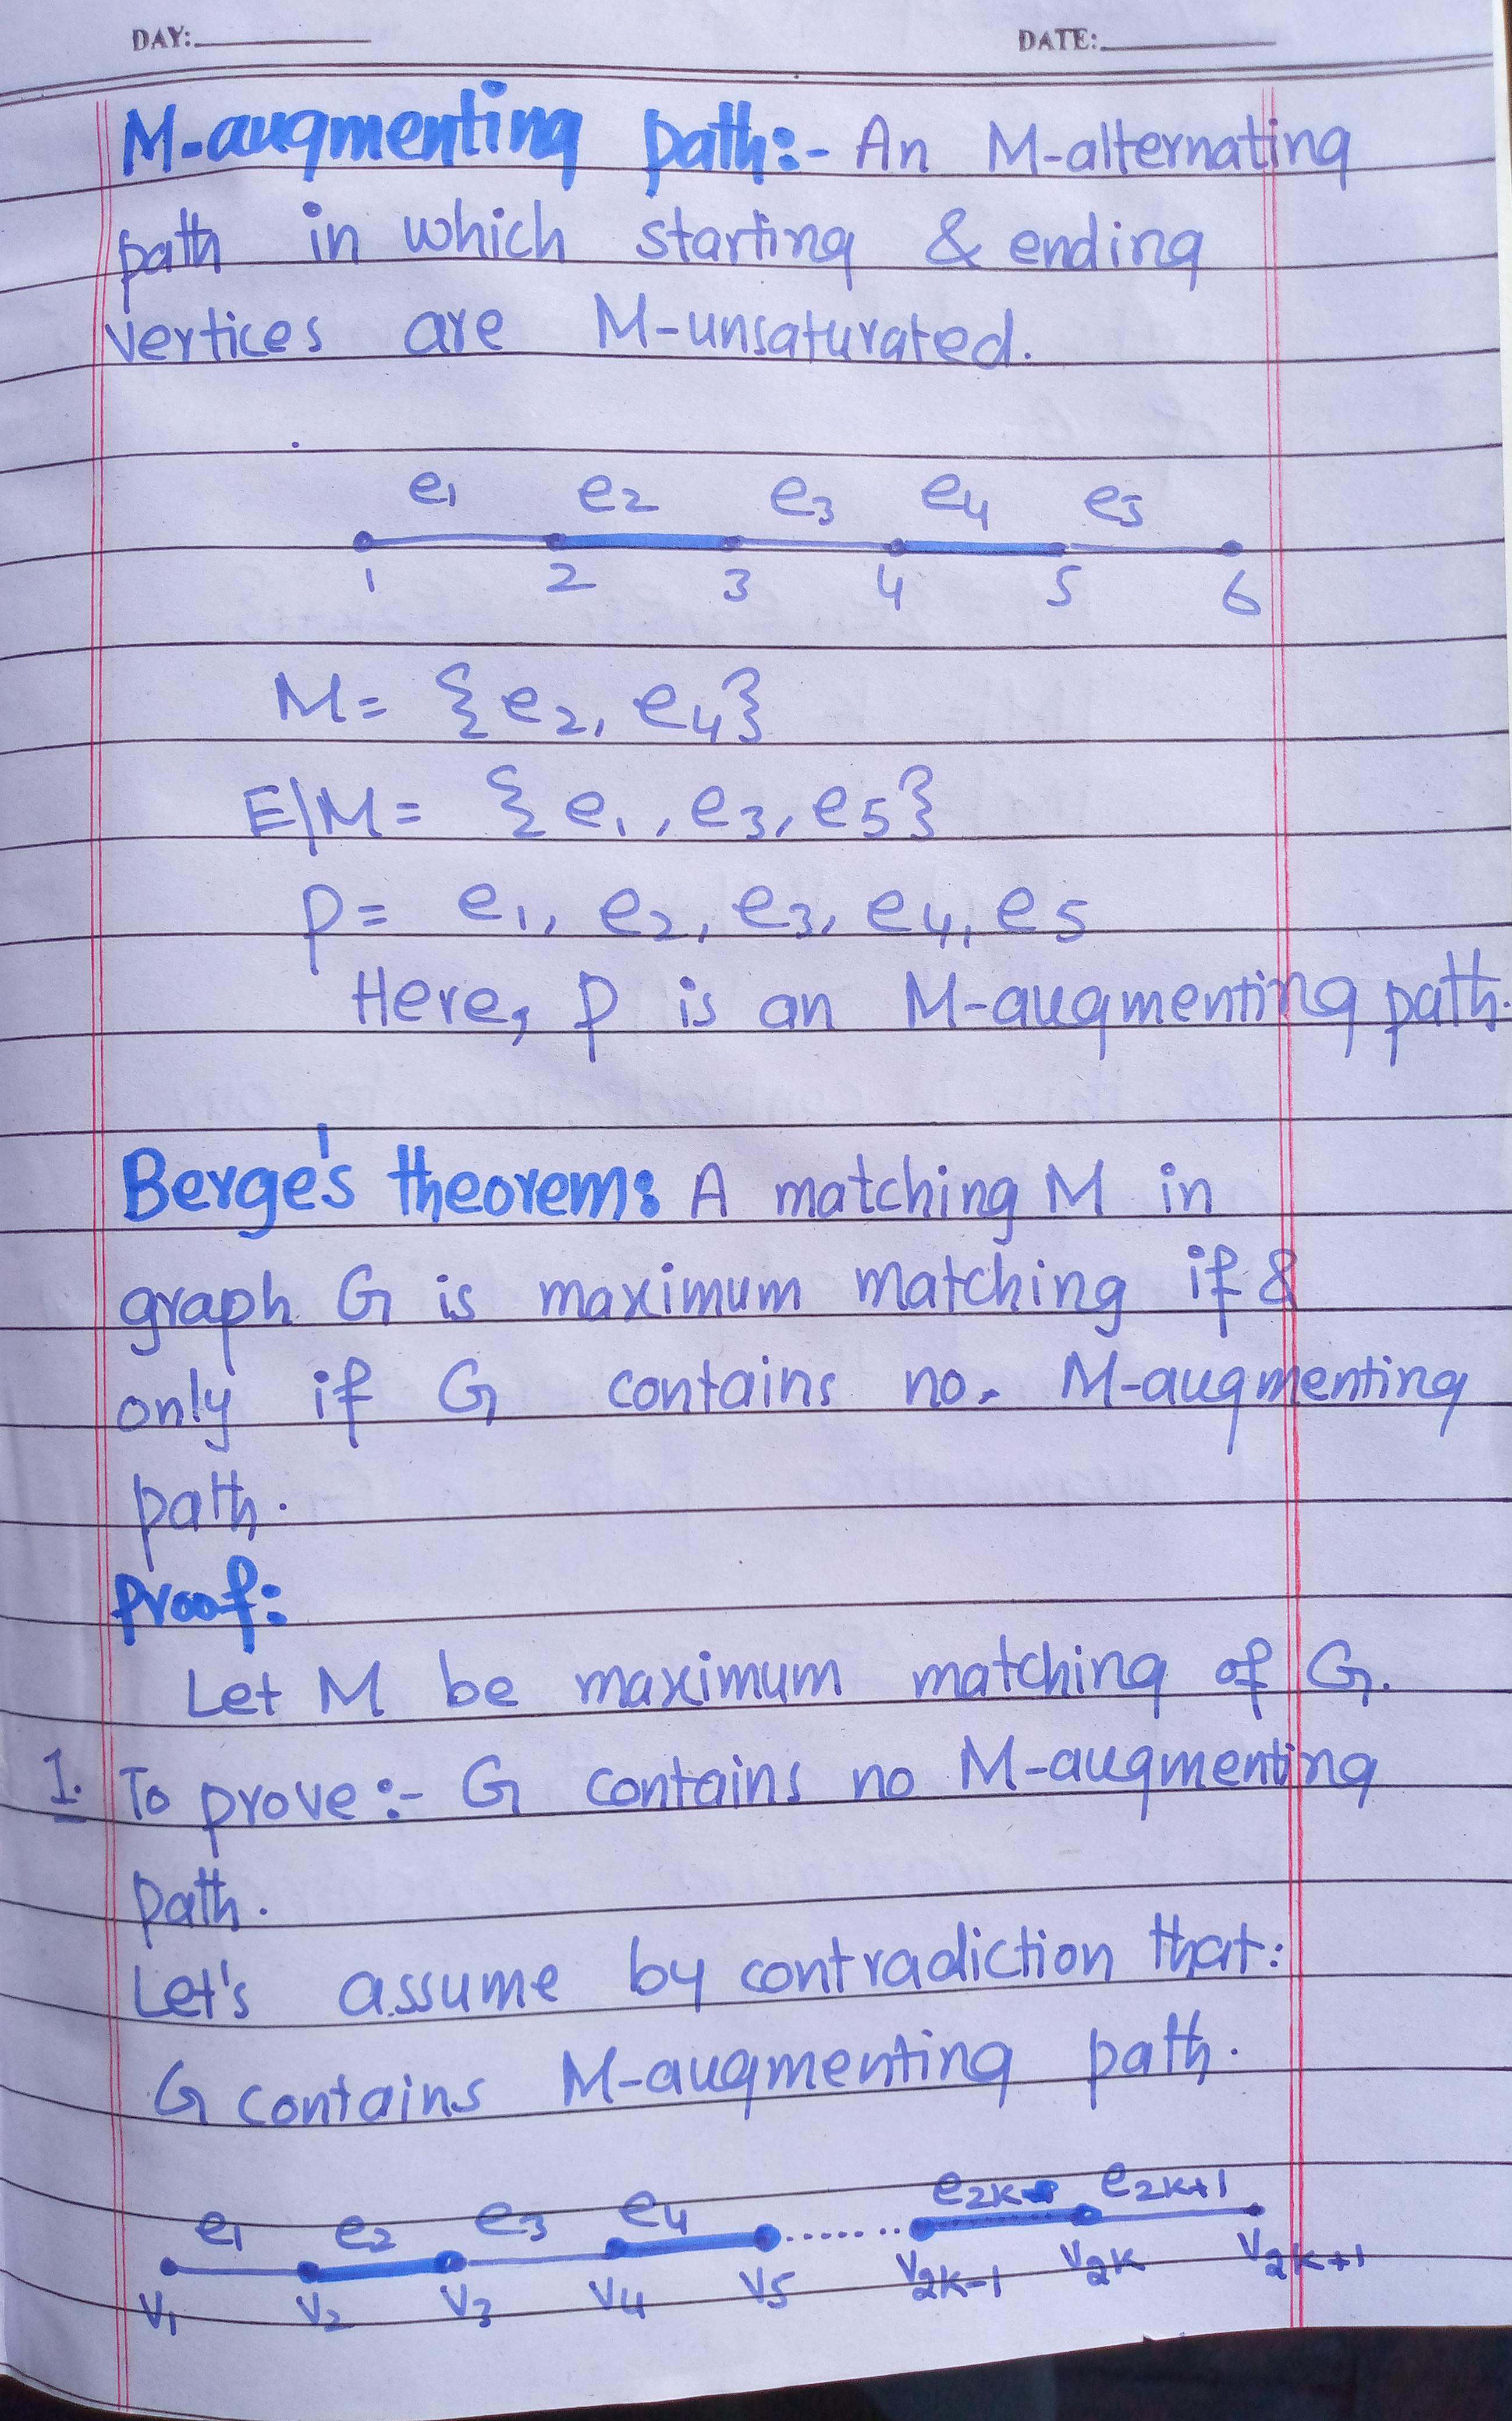 DAY:
DATE:
M-augmenting path:- An M-alternating
path in which starting & ending
vertices are M-unsaturated.
e1 e2 e3 e4 e5
1 2 3 4 5 6
M= {e2, e4}
E|M= {e1, e3, e5}
P= e1, e2, e3, e4, e5
Here, P is an M-augmenting path.
Berge's theorem: A matching M in
graph G is maximum matching if &
only if G contains no. M-augmenting
path.
Proof:
Let M be maximum matching of G.
1. To prove:- G contains no M-augmenting
path.
Let's assume by contradiction that:
G contains M-augmenting path.
e1 e2 e3 e4 e2k+1
v1 v2 v3 v4 v5 ........ v2k-1 v2k v2k+1